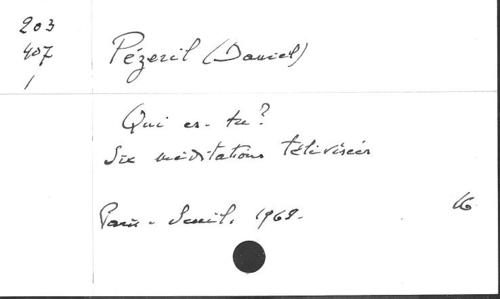 203
407
1
Pézeril (Daniel)
Qui es-tu?
Six méditations télévisées
Paris - Seuil, 1962.
16